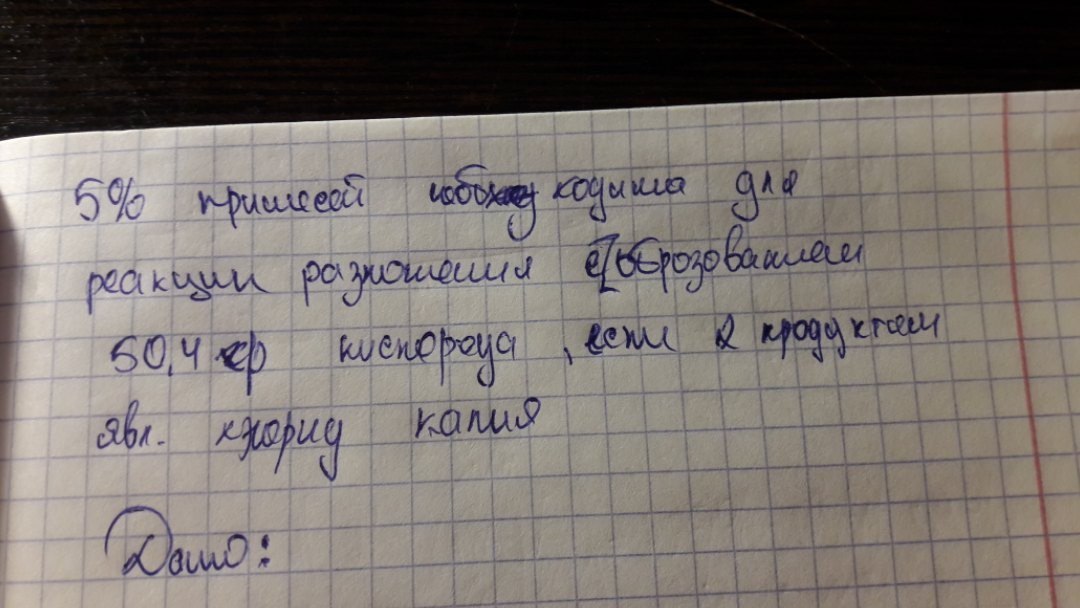 5% примесей необходима для
реакции разложения с образованием
50,4 гр кислорода, если 2 продуктом
явл. хлорид калия
Дано: